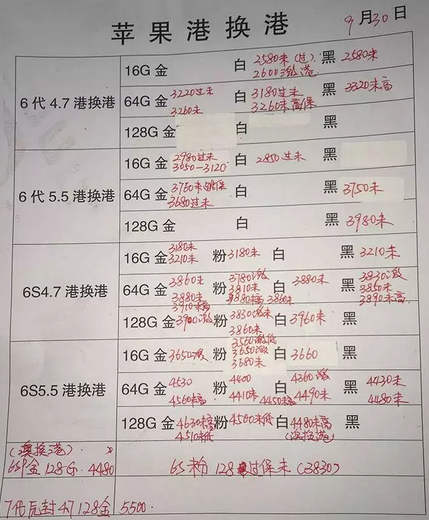 苹果港换港 9月30日
6代4.7港换港
16G 金 白 2580未(过) 黑 2580未
2600激港
64G 金 3220过未 白 3180过未 黑 3320未高
3260未 3260未高保
128G 金 白 黑
6代5.5港换港
16G 金 2980过未 白 2850过未 黑
3050-3120
64G 金 3760未低保 白 黑 3750未
3680过未
128G 金 白 黑 3980未
6S4.7港换港
3180未
16G 金 3210未 粉 3180未 白 黑 3210未
64G 金 3860未 粉 3780激 白 3880未 黑 3830激
3880未 3810未 3860未 3850未
3910未高 3880未高 3890未高
128G 金 3900激 粉 3830激未 白 3960未 黑
3860未
6S5.5港换港
3560激低
16G 金 3650激 粉 3650激 白 3660 黑
3680未
64G 金 4530 粉 4400 白 4360激 黑 4430未
4560未高 4410未 4450未高 4490未 4480未
128G 金 4630未高 粉 4560未低 白 4480未高 黑
4510未低 (澳换港)
(澳换港)
6SP金128G 4480 6S粉128过保未(3830)
7代后封4.7 128金 5500